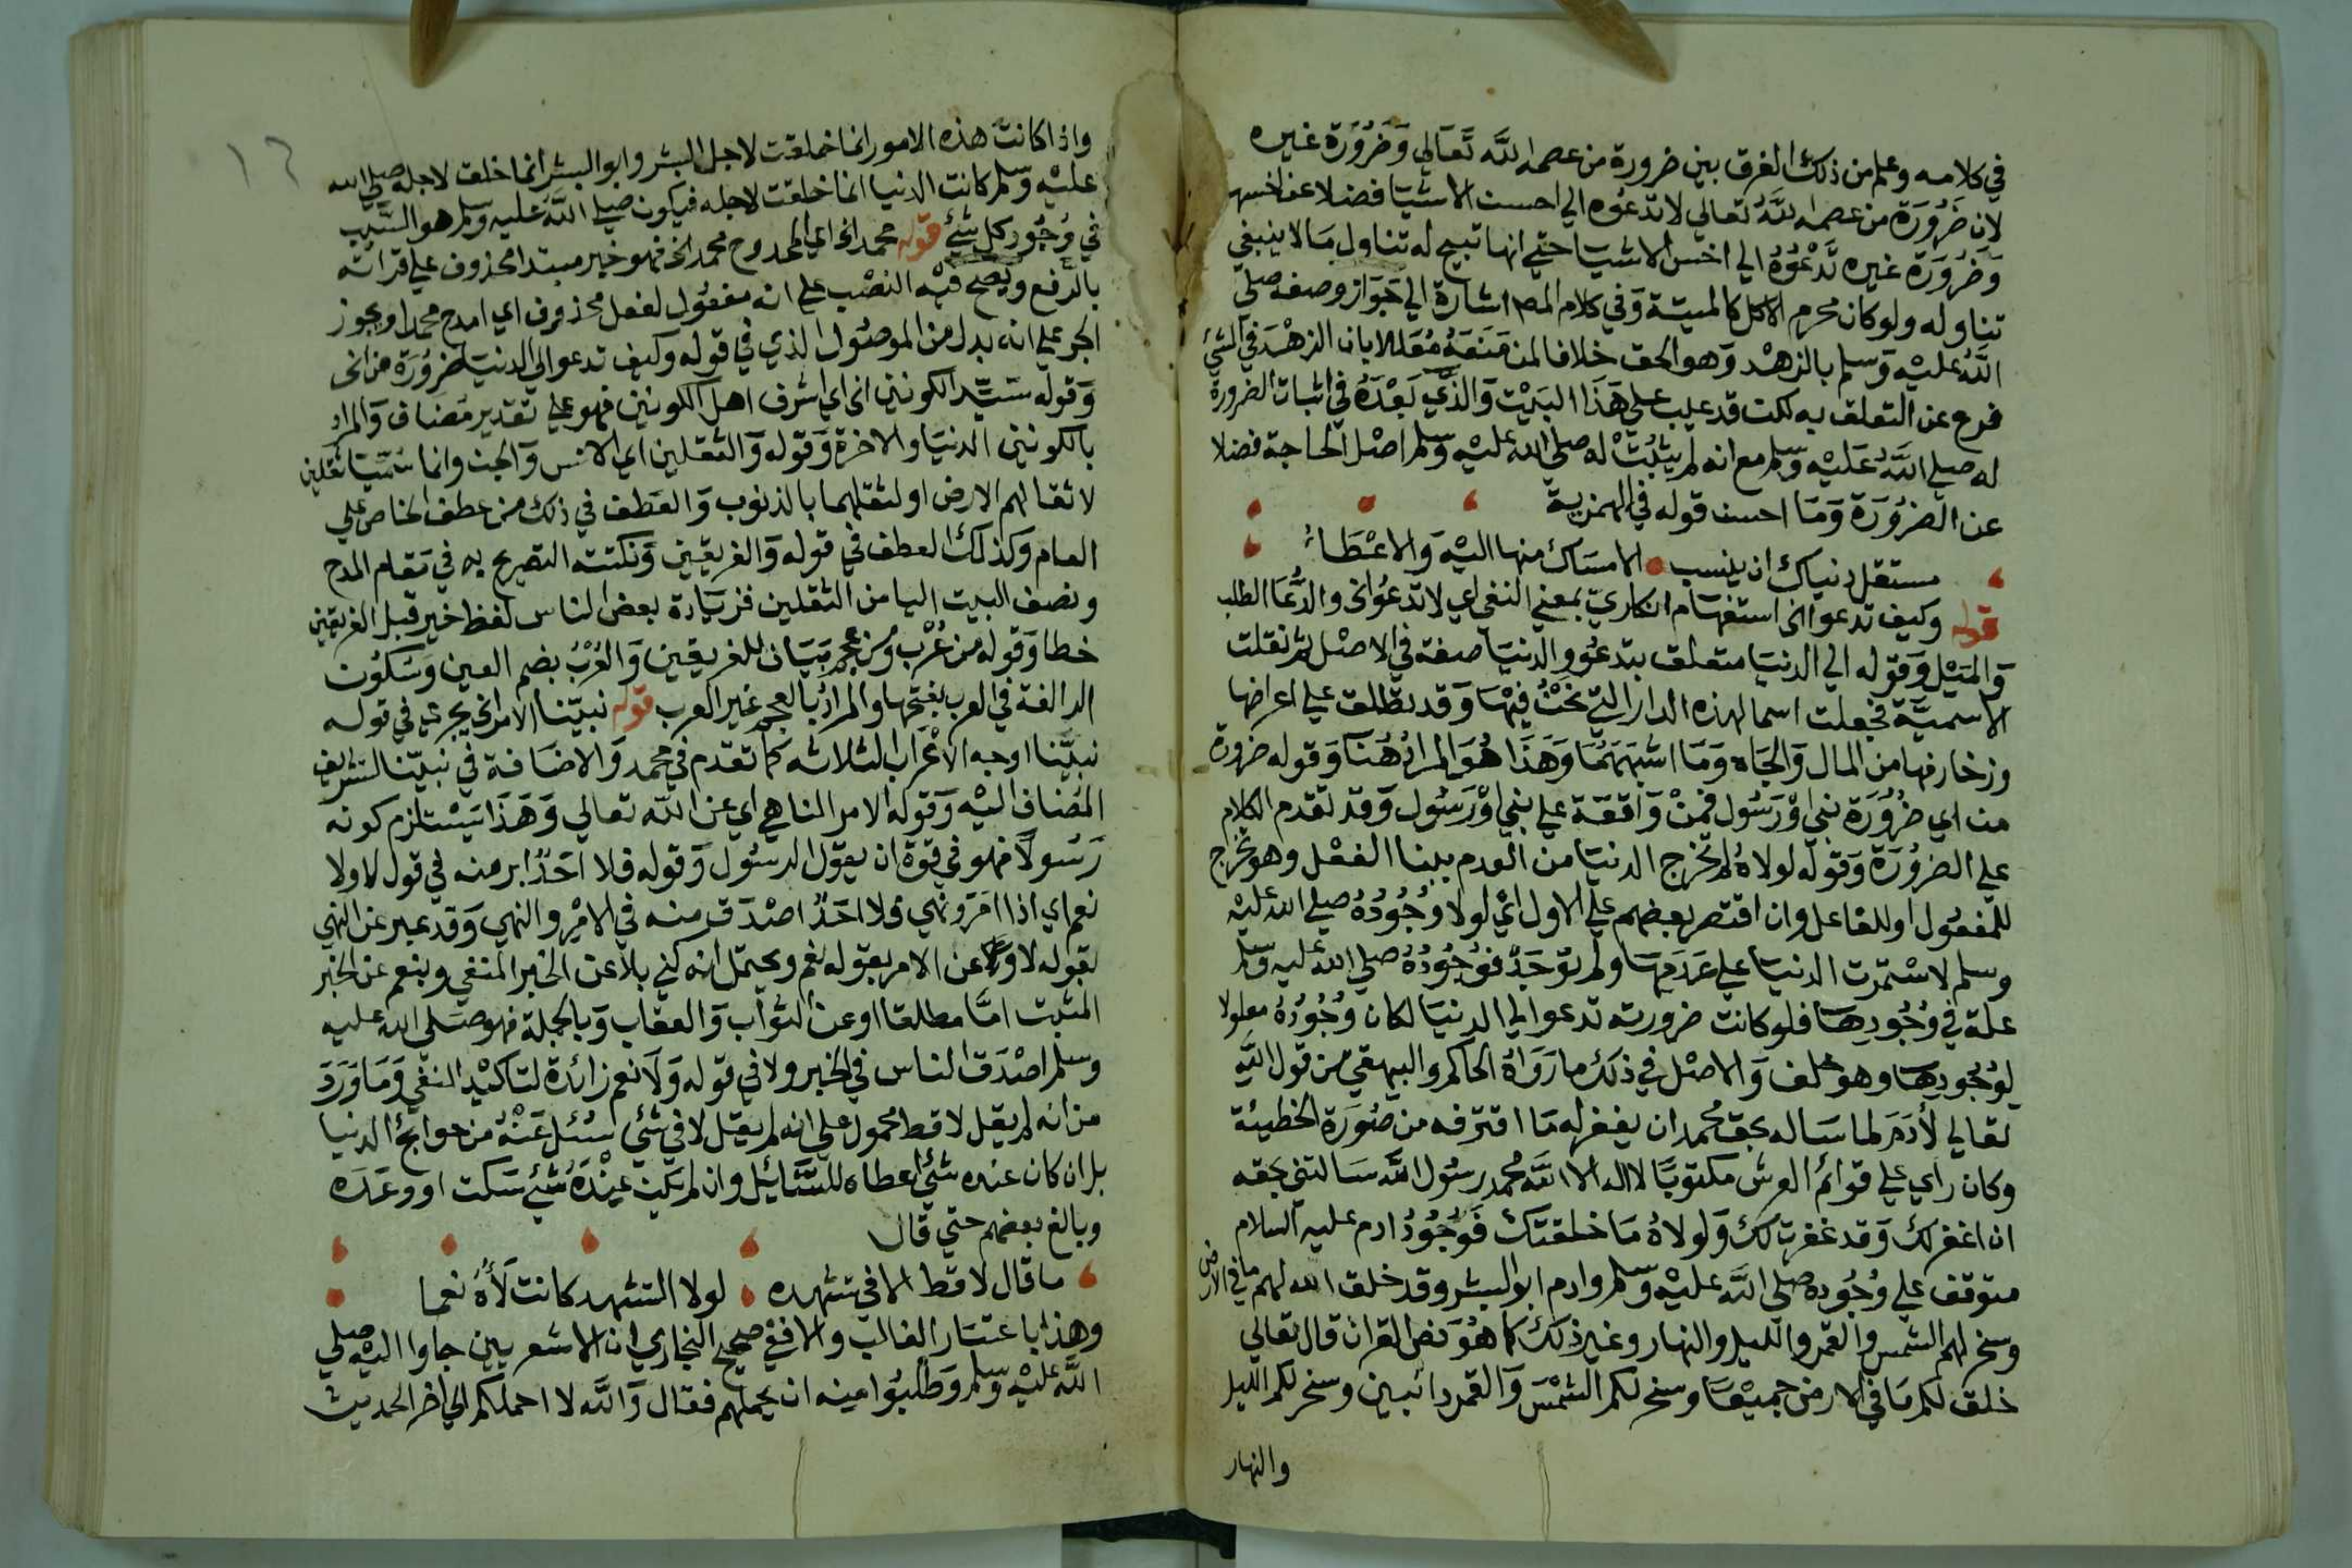 في كلامه وعلم من ذلك الفرق بين ضرورة من عصمه الله تعالي وضرورة غيره
لان ضرورة من عصمه الله تعالي لا تدعوه الي احسن الاشيا فضلا عن اخسها
وضرورة غيره تدعوه الي اخس الاشيا حتي انها تبيح له تناول ما لا ينبغي
تناوله ولو كان محرم الاكل كالميتة وفي كلام المص اشارة الي جواز وصفه صلي
الله عليه وسلم بالزهد وهو الحق خلافا لمن منعه معللا بان الزهد في الشي
فرع عن التعلق به لكن قد عيب علي هذا البيت والذي بعده في اثبات الضرورة
له صلي الله عليه وسلم مع انه لم يثبت له صلي الله عليه وسلم اصل الحاجة فضلا
عن الضرورة وما احسن قوله في الهمزية
مستقل دنياك ان ينسب الامساك منها اليه والاعطاء
قوله وكيف تدعو الخ استفهام انكاري بمعني النفي اي لا تدعو الخ والدعا الطلب
والميل وقوله الي الدنيا متعلق بتدعو والدنيا صفة في الاصل ثم نقلت
الاسمية فجعلت اسما لهذه الدار التي نحن فيها وقد تطلق علي اعراضها
وزخارفها من المال والجاه وما اشبههما وهذا هو المراد هنا وقوله ضرورة
من اي ضرورة نبي او رسول فمن واقعة علي نبي او رسول وقد تقدم الكلام
علي الضرورة وقوله لولاه لم تخرج الدنيا من العدم ببنا الفعل وهو تخرج
للمفعول او للفاعل وان اقتصر بعضهم علي الاول اي لولا وجوده صلي الله عليه
وسلم لاستمرت الدنيا علي عدمها ولم توجد فوجوده صلي الله عليه وسلم
علة في وجودها فلو كانت ضرورته تدعو الي الدنيا لكان وجوده معلولا
لوجودها وهو خلف والاصل في ذلك ما رواه الحاكم والبيهقي من قول الله
تعالي لأدم لما ساله بحق محمد ان يغفر له ما اقترفه من صورة الخطيئة
وكان راي علي قوائم العرش مكتوبا لا اله الا الله محمد رسول الله سالتني بحقه
ان اغفر لك وقد غفرت لك ولولاه ما خلقتك فوجود ادم عليه السلام
متوقف علي وجوده صلي الله عليه وسلم وادم ابو البشر وقد خلق الله لهم ما في الارض
وسخر لهم الشمس والقمر والليل والنهار وغير ذلك كما هو نص القران قال تعالي
خلق لكم ما في الارض جميعا وسخر لكم الشمس والقمر دائبين وسخر لكم الليل
والنهار
١٦
واذا كانت هذه الامور انما خلقت لاجل البشر وابو البشر انما خلق لاجله صلي الله
عليه وسلم كانت الدنيا انما خلقت لاجله فيكون صلي الله عليه وسلم هو السبب
في وجود كل شئ قوله محمد الخ اي الممدوح محمد الخ فهو خبر مبتدا محذوف علي قرائته
بالرفع ويصح فيه النصب علي انه مفعول لفعل محذوف اي امدح محمدا ويجوز
الجر علي انه بدل من الموصول الذي في قوله وكيف تدعو الي الدنيا ضرورة من الخ
وقوله سيد الكونين الخ اي اشرف اهل الكونين فهو علي تقدير مضاف والمراد
بالكونين الدنيا والاخرة وقوله والثقلين اي الانس والجن وانما سميا ثقلين
لاثقالهم الارض او لثقلهما بالذنوب والعطف في ذلك من عطف الخاص علي
العام وكذلك العطف في قوله والفريقين ونكتته التصريح به في مقام المدح
ونصف البيت اليا من الثقلين فزيادة بعض الناس لفظ خير قبل الفريقين
خطا وقوله من عرب ومن عجم بيان للفريقين والعرب بضم العين وسكون
الرا لغة في العرب بفتحها والمراد بالعجم غير العرب قوله نبينا الامر الخ يجري في قوله
نبينا اوجه الاعراب الثلاثه كما تقدم في محمد والاضافة في نبينا لتشريف
المضاف اليه وقوله الامر الناهي اي عن الله تعالي وهذا يستلزم كونه
رسولا فهو في قوة ان يقول الرسول وقوله فلا احد ابر منه في قول لا ولا
نعم اي اذا امر ونهي فلا احد اصدق منه في الامر والنهي وقد عبر عن النهي
بقوله لا وعن الامر بقوله نعم ويحتمل انه كني بلا عن الخبر المنفي وبنعم عن الخبر
المثبت اما مطلقا او عن الثواب والعقاب وبالجملة فهو صلي الله عليه
وسلم اصدق الناس في الخبر ولا في قوله ولا نعم زائدة لتاكيد النفي وما ورد
من انه لم يقل لا قط محمول علي انه لم يقل لا في شئي اسئل عنه من حوائج الدنيا
بل ان كان عنده شئ اعطاه للسائل وان لم يكن عنده شئ سكت او وعده
وبالغ بعضهم حتي قال
ما قال لا قط الا في تشهده لولا التشهد كانت لاؤه نعما
وهذا باعتبار الغالب والا ففي صحيح البخاري ان الاشعريين جاوا اليه صلي
الله عليه وسلم وطلبوا منه ان يحملهم فقال والله لا احملكم الي اخر الحديث